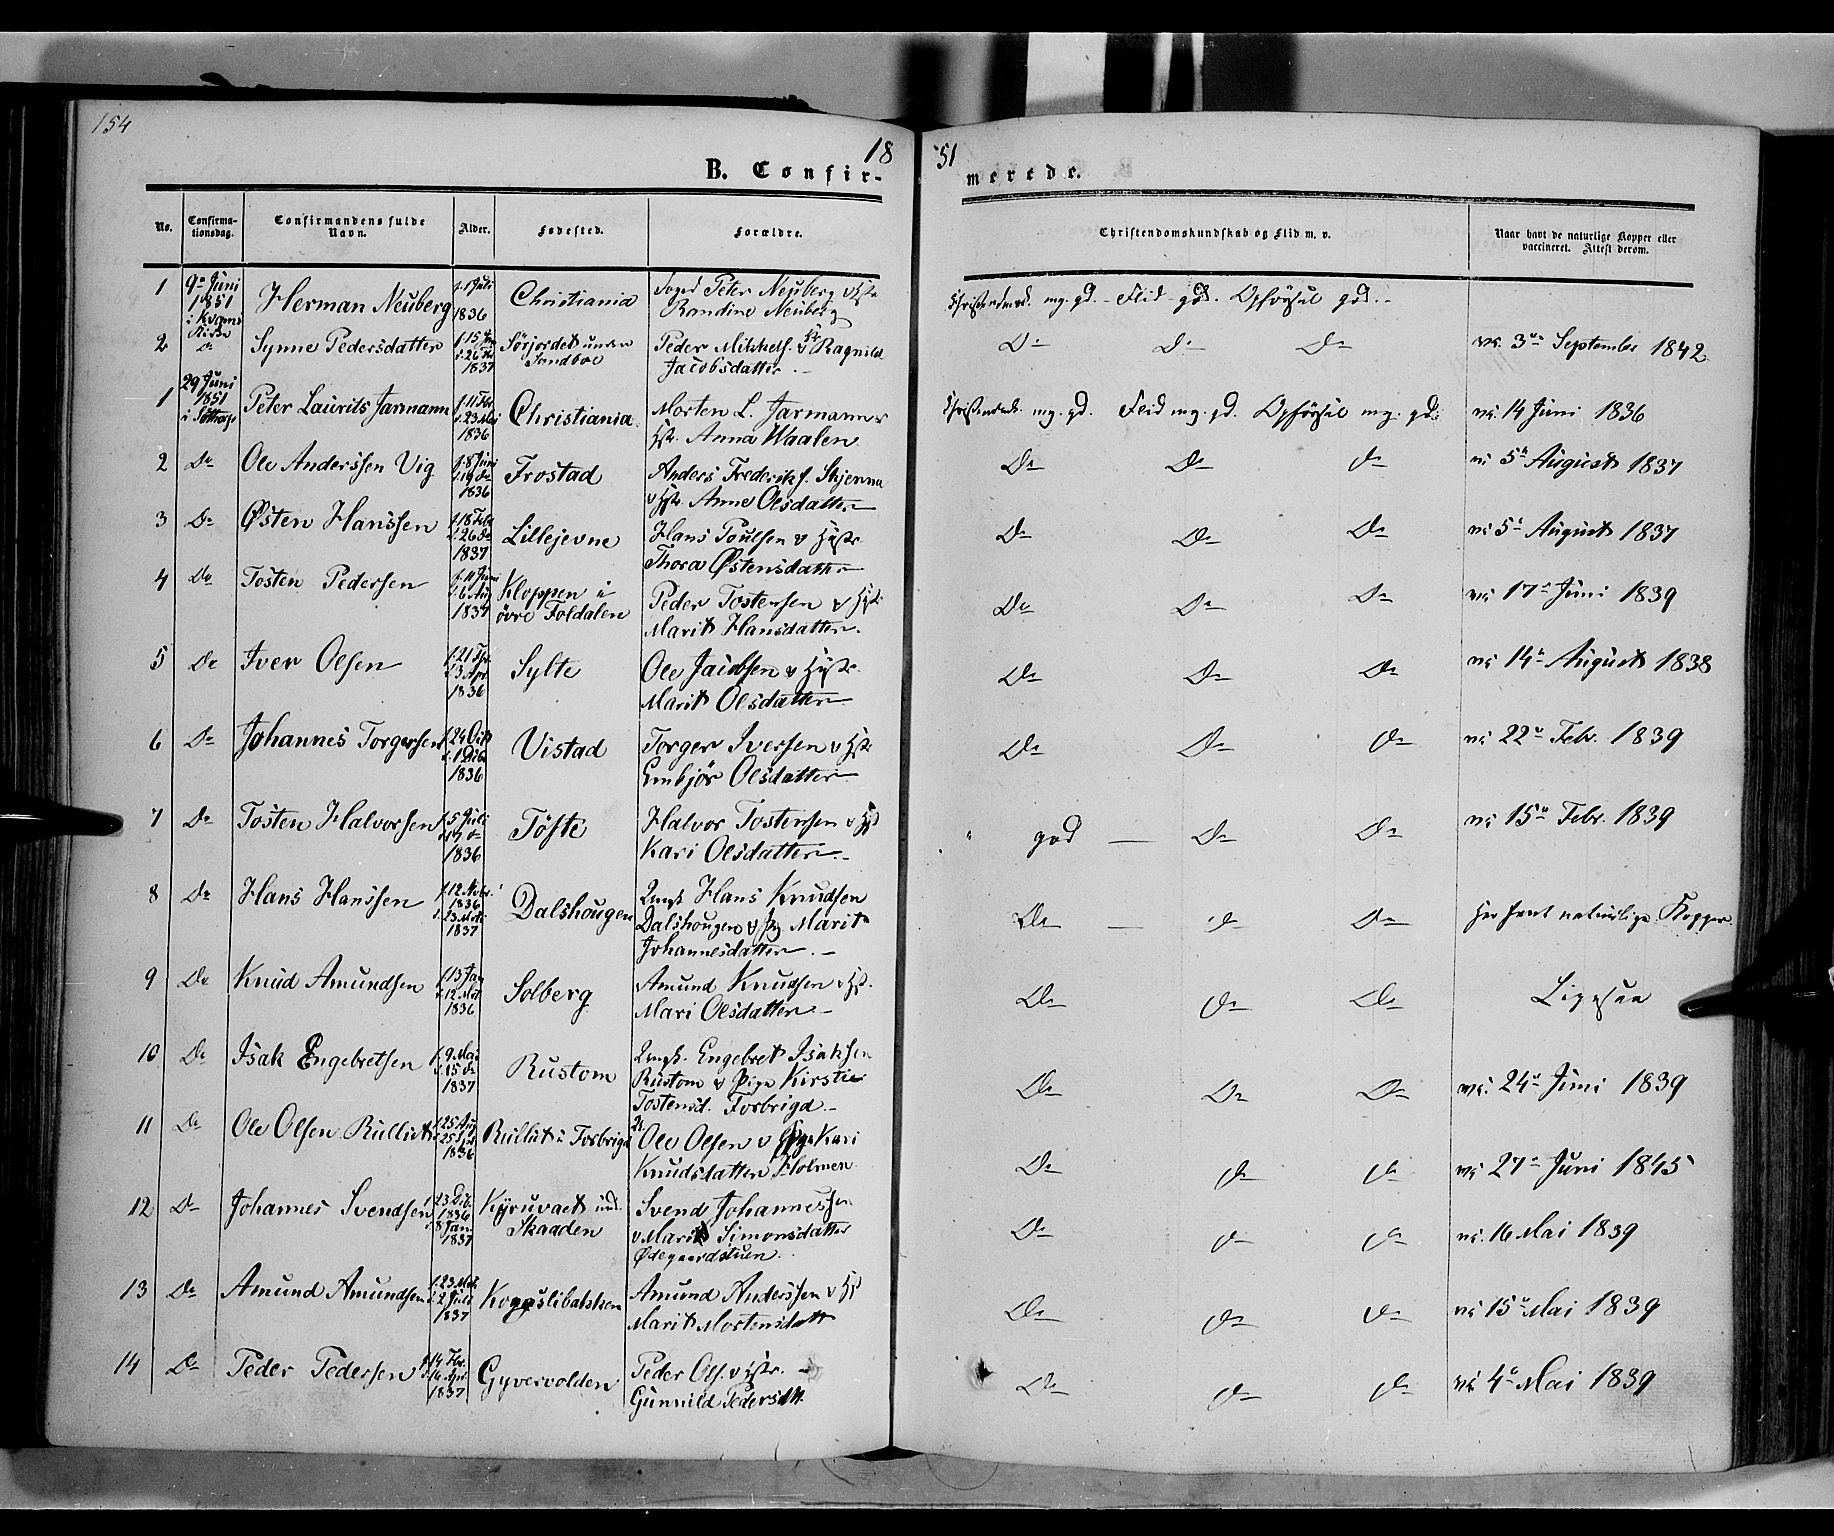 154
18 51
B. Confir- merede.
No. Confirma-tionsdag. Confirmandens fulde Navn. Alder. Fødested. Forældre. Christendomskundskab og Flid m. v. Naar havt de naturlige Kopper eller vaccineret. Attest derom.
1 9de Juni 1851 i Kvams Kirke Herman Neuberg f. 1 Juli 1836 Christiania Peter Neuberg v Hstr Randine Neuberg mg. gd. - Flid gd. Opførsel gd. -
2 Synne Pedersdatter 1837 Sørjordet under Sandboe Peder Mikkels. v Ragnild Jacobsdatter. - Do Do Do vc. 3de September 1842
1 29 Juni 1851 Peter Laurits Jarmann 1836 Christiania Morten L. Jarmann v Hstr. Anna Waalen mg. gd. Flid mg. gd. Opførsel mg. gd. vc 14 Juni 1836
2 Do Ole Anderssen Vig f. 8 Juni 1836 Frostad Anders Frederiks. Skjenna v Hstr. Anne Olsdatter Do Do do vc 5te August 1837
3 Do Østen Hanssen f. 18 Febr 1837 Lillejevne Hans Poulsen v Hstr Thora Østensdatter Do Do Do vc 5te August 1837
4 Do Tosten Pedersen 1837 Kloppen i øvre Foldalen Peder Tostensen v Hstr Marit Hansdatter. Do Do Do vc 17de Juni 1839
5 Do Iver Olsen 1836 Sylte Ole Jacobsen v Hstr. Marit Olsdatter Do Do Do vc 14de August 1838
6 Do Johannes Torgersen 1836 Vistad Torger Iversen v Hstr Embjør Olsdatter Do Do do vc 22de Febr. 1839
7 Do Tosten Halvorsen f. 5 Juli 1836 Tøfte Halvor Tostensen v Kari Olsdatter. god - Do Do vc 15de Febr. 1839
8 Do Hans Hanssen f. 12 Novbr. 1836 1837 Dalshougen Ungk. Hans Knudsen Dalshougen v Marit Johannesdatter. - Do - do Do har havt naturlige Kopper.
9 Do Knud Amundsen f. 13 Jan 1836 Solberg Amund Knudsen v Hst. Mari Olsdatter. - Do do Do Ligesaa
10 Do Isak Engebretsen f. 9 Mai 15 do 1837 Rustom Ungk. Engebret Isaksen Rustom v Pige Kirstie Tostensd. Forbrigd. - Do Do Do vc. 24de Juni 1839
11 Do Ole Olsen Rullut 1836 Rullut i Forbrigd Ole Olsen v Kari Knudsdatter Holmen Do do do vc 27de Juni 1845
12 Do Johannes Svendsen 1836 8 Jan 1837 und. Skaaden Svend Johannessen v Marit Simonsdatter Ødegaardstuen. Do do do vc. 16 Mai 1839
13 Do Amund Amundsen 2 Juli 1837 Amund Anderssen v Marit Mortensdatt Do do do vc 15de Mai 1839
14 Do Peder Pedersen 1837 Gyvervolden Peder Ols. v Hstr. - Gunnild Pedersdtt. Do do do vc 4de Mai 1839